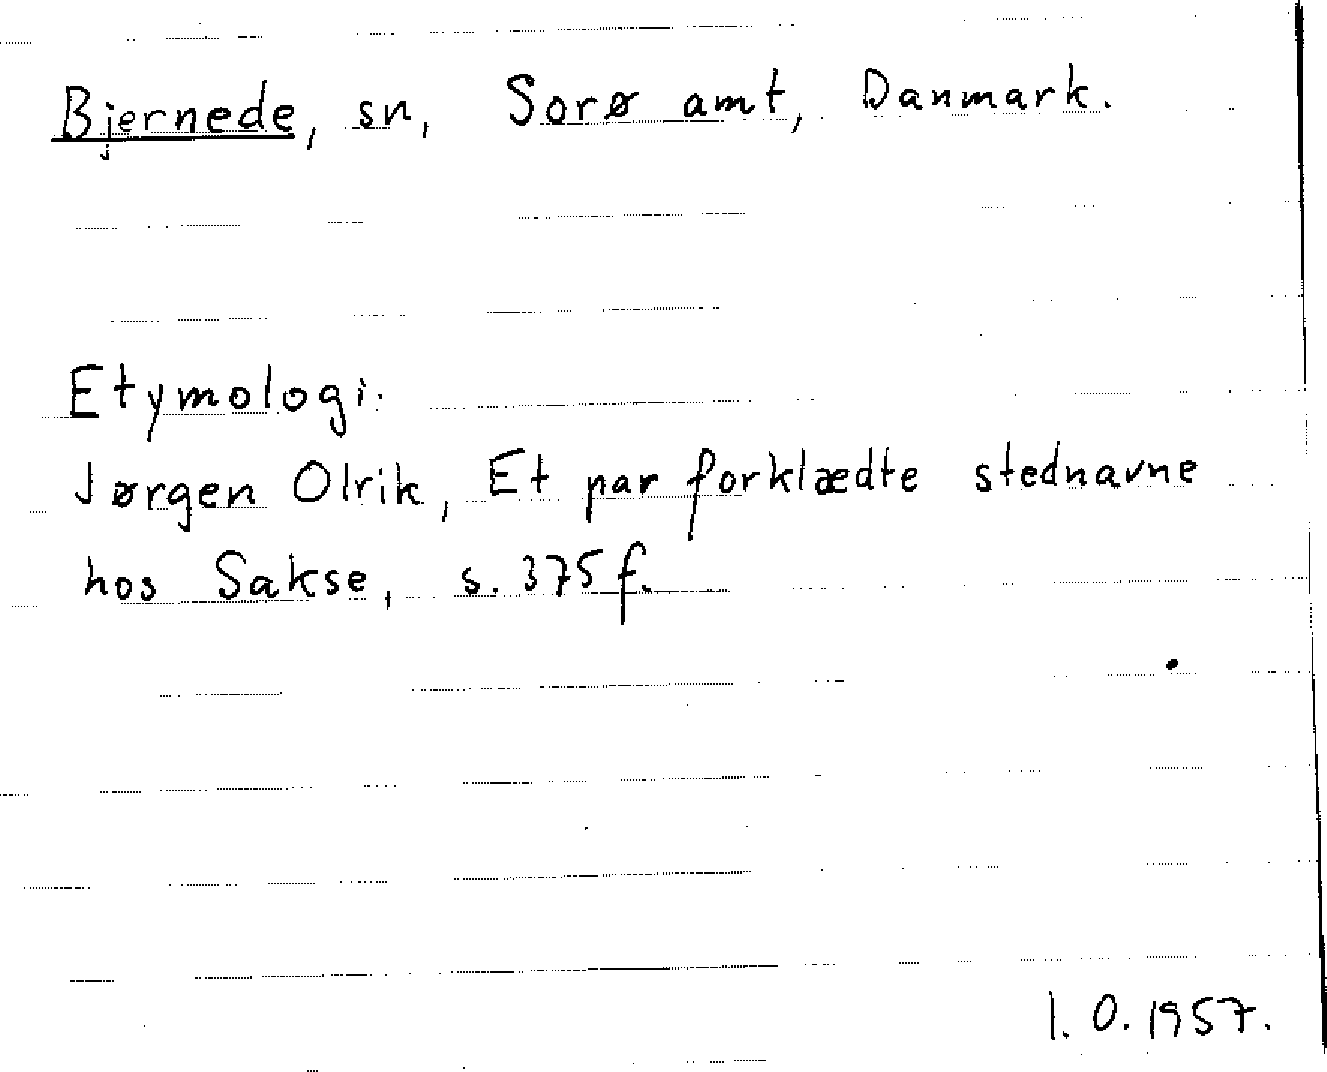 Bjernede, sn, Sorø amt, Danmark.
Etymologi:
Jørgen Olrik, Et par forklædte stednavne
hos Sakse, s. 375 f.
I. O. 1957.